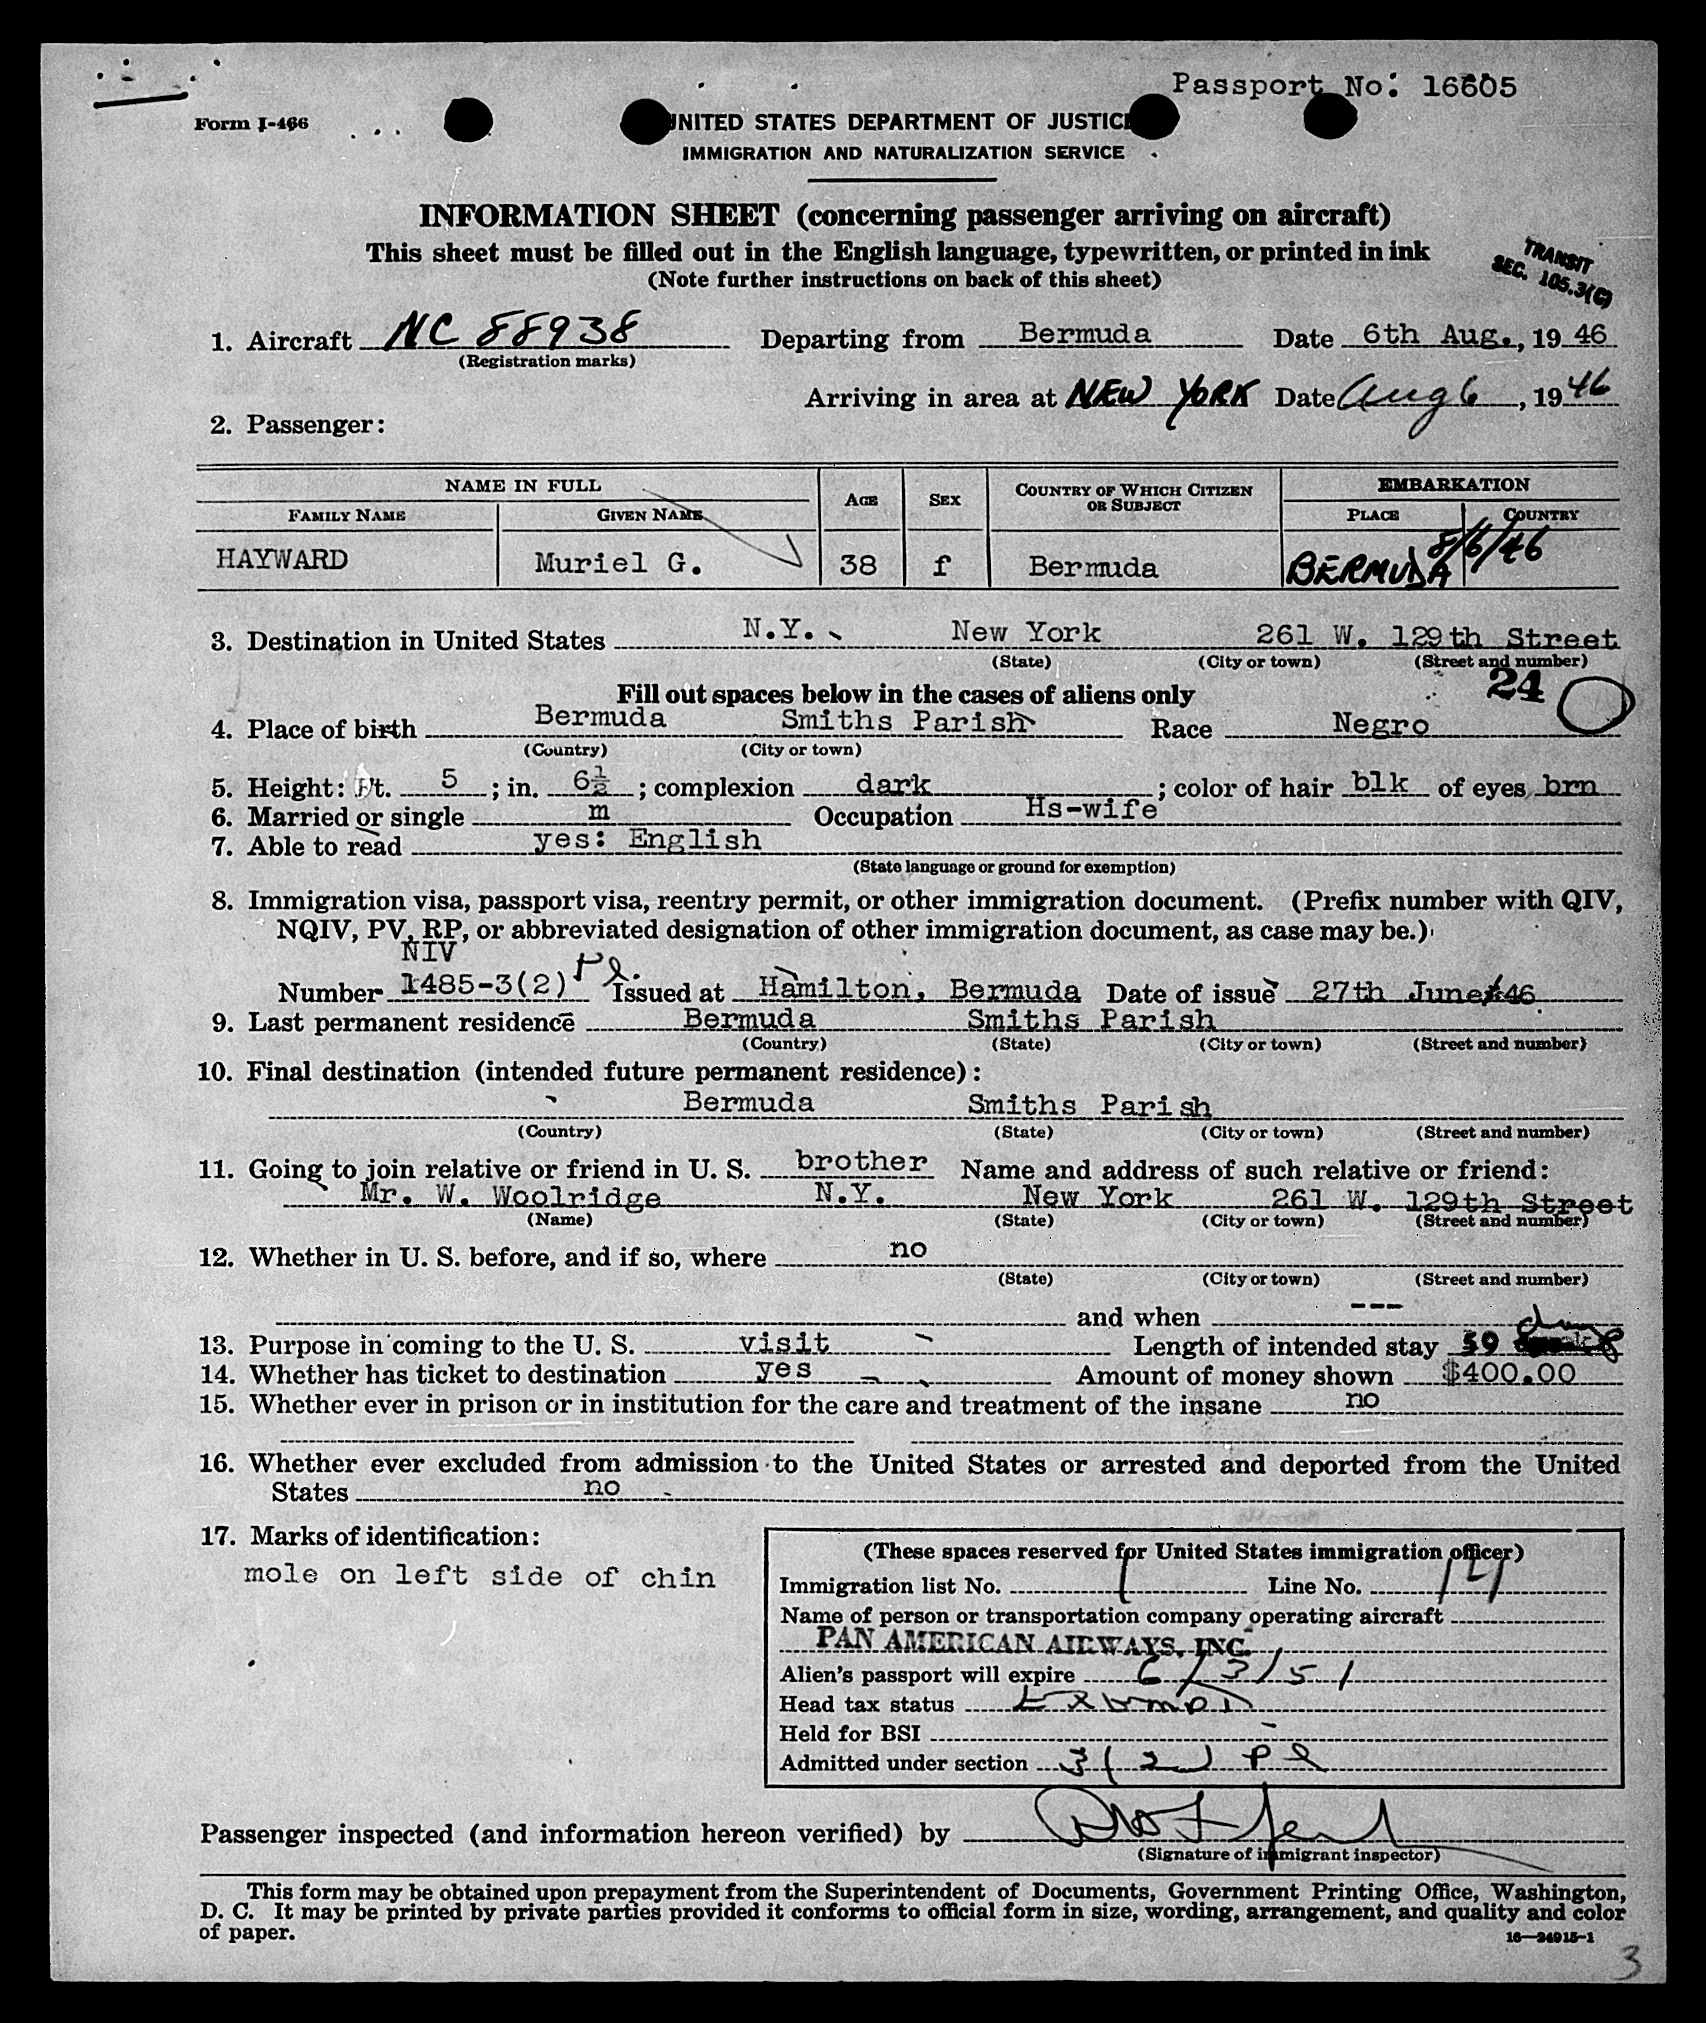 Passport No: 16605
Form I-466
UNITED STATES DEPARTMENT OF JUSTICE
IMMIGRATION AND NATURALIZATION SERVICE
INFORMATION SHEET (concerning passenger arriving on aircraft)
This sheet must be filled out in the English language, typewritten, or printed in ink
(Note further instructions on back of this sheet)
TRANSIT
SEC. 105.3(C)
1. Aircraft NC 88938 Departing from Bermuda Date 6th Aug., 19 46
(Registration marks)
Arriving in area at NEW YORK Date Aug 6, 19 46
2. Passenger:
NAME IN FULL AGE SEX COUNTRY OF WHICH CITIZEN OR SUBJECT EMBARKATION
FAMILY NAME GIVEN NAME PLACE COUNTRY
HAYWARD Muriel G. 38 f Bermuda BERMUDA 8/6/46
3. Destination in United States N.Y. New York 261 W. 129th Street
(State) (City or town) (Street and number)
24
Fill out spaces below in the cases of aliens only
4. Place of birth Bermuda Smiths Parish Race Negro
(Country) (City or town)
5. Height: Ft. 5 ; in. 6½ ; complexion dark ; color of hair blk of eyes brn
6. Married or single m Occupation Hs-wife
7. Able to read yes: English
(State language or ground for exemption)
8. Immigration visa, passport visa, reentry permit, or other immigration document. (Prefix number with QIV,
NQIV, PV, RP, or abbreviated designation of other immigration document, as case may be.)
NIV
Number 1485-3(2) Pl. Issued at Hamilton, Bermuda Date of issue 27th June 46
9. Last permanent residence Bermuda Smiths Parish
(Country) (State) (City or town) (Street and number)
10. Final destination (intended future permanent residence):
Bermuda Smiths Parish
(Country) (State) (City or town) (Street and number)
11. Going to join relative or friend in U. S. brother Name and address of such relative or friend:
Mr. W. Woolridge N.Y. New York 261 W. 129th Street
(Name) (State) (City or town) (Street and number)
12. Whether in U. S. before, and if so, where no
(State) (City or town) (Street and number)
and when ---
13. Purpose in coming to the U. S. visit Length of intended stay 59 days
14. Whether has ticket to destination yes Amount of money shown $400.00
15. Whether ever in prison or in institution for the care and treatment of the insane no
16. Whether ever excluded from admission to the United States or arrested and deported from the United
States no
17. Marks of identification:
mole on left side of chin
(These spaces reserved for United States immigration officer)
Immigration list No. 1 Line No.
Name of person or transportation company operating aircraft
PAN AMERICAN AIRWAYS, INC.
Alien's passport will expire 6/3/51
Head tax status Exempt
Held for BSI -
Admitted under section 3(2) Pl
Passenger inspected (and information hereon verified) by
(Signature of immigrant inspector)
This form may be obtained upon prepayment from the Superintendent of Documents, Government Printing Office, Washington,
D. C. It may be printed by private parties provided it conforms to official form in size, wording, arrangement, and quality and color
of paper.
16—24915-1
3